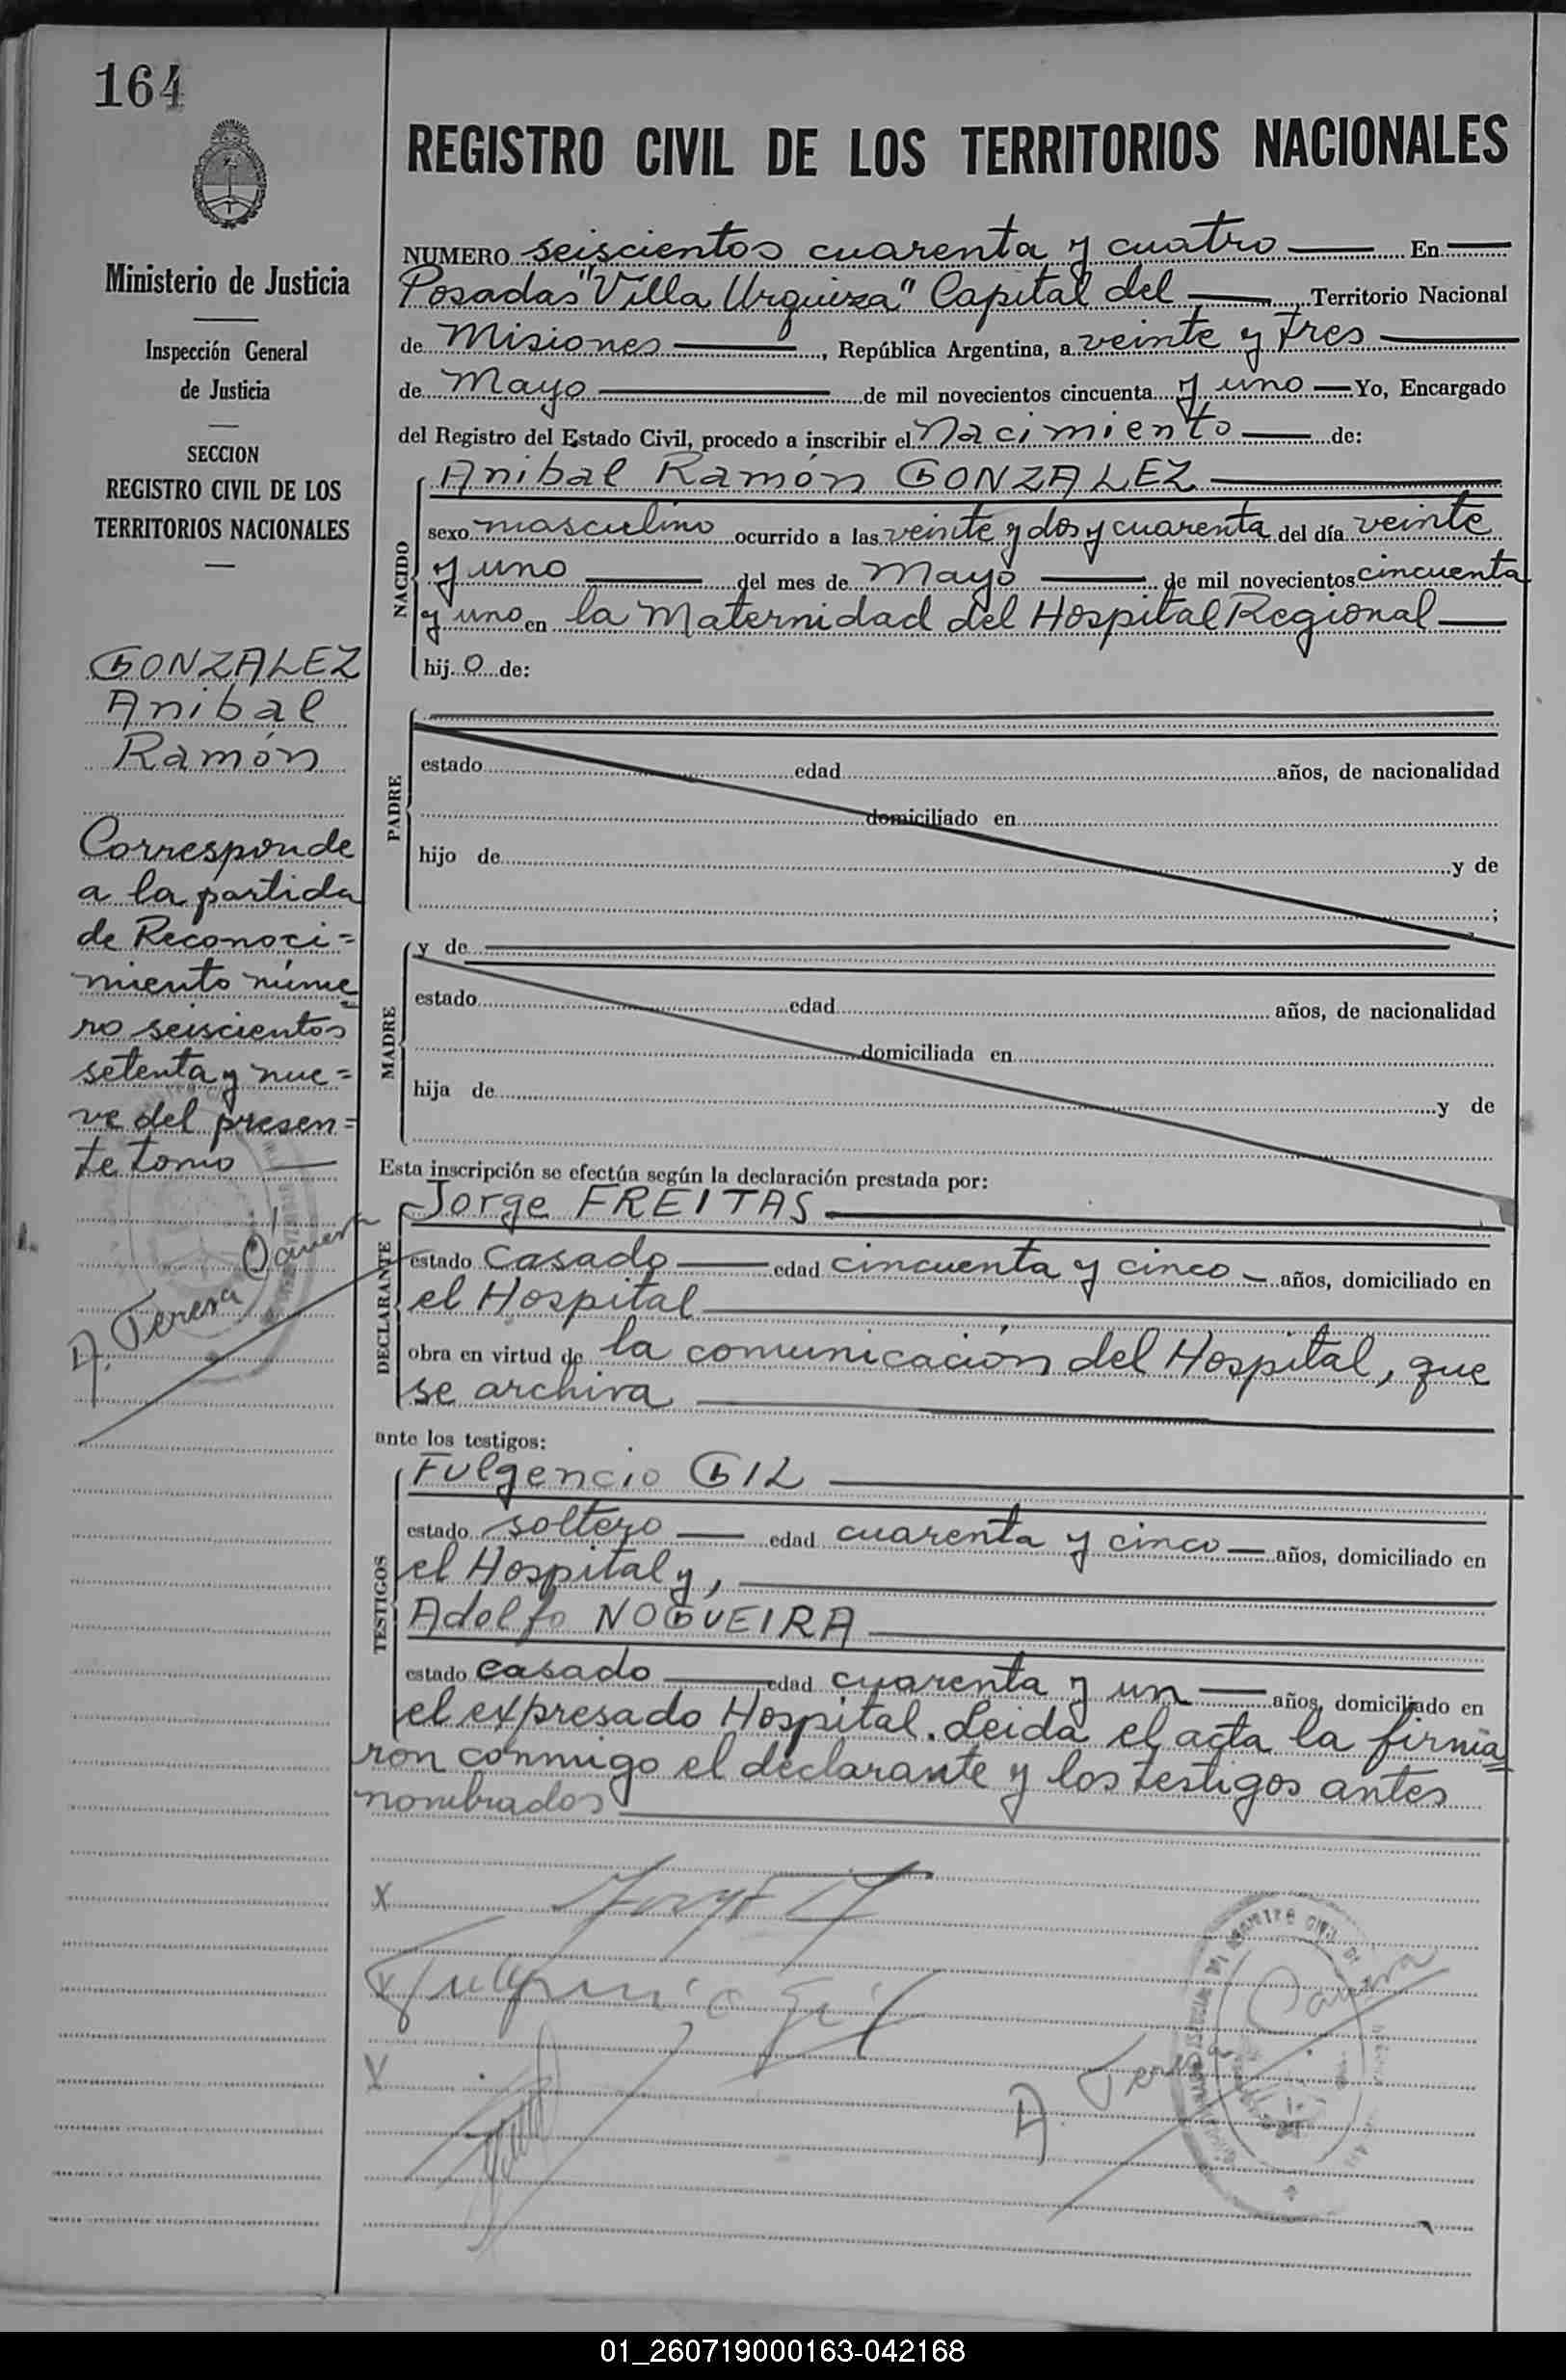 164
REGISTRO CIVIL DE LOS TERRITORIOS NACIONALES
Ministerio de Justicia
Inspección General
de Justicia
SECCION
REGISTRO CIVIL DE LOS
TERRITORIOS NACIONALES
GONZALEZ
Anibal
Ramón
Corresponde
a la partida
de Reconoci=
miento núme=
ro seiscientos
setenta y nue=
ve del presen=
te tomo
A. Teresa
NUMERO seiscientos cuarenta y cuatro En
Posadas "Villa Urquiza" Capital del Territorio Nacional
de Misiones, República Argentina, a veinte y tres
de Mayo de mil novecientos cincuenta y uno Yo, Encargado
del Registro del Estado Civil, procedo a inscribir el Nacimiento de:
NACIDO
Anibal Ramón GONZALEZ
sexo masculino ocurrido a las veinte y dos y cuarenta del día veinte
y uno del mes de Mayo de mil novecientos cincuenta
y uno en la Maternidad del Hospital Regional
hijo de:
PADRE
estado edad años, de nacionalidad
domiciliado en
hijo de y de
;
MADRE
y de
estado edad años, de nacionalidad
domiciliada en
hija de y de
Esta inscripción se efectúa según la declaración prestada por:
DECLARANTE
Jorge FREITAS
estado casado edad cincuenta y cinco años, domiciliado en
el Hospital
obra en virtud de la comunicación del Hospital, que
se archiva
ante los testigos:
TESTIGOS
Fulgencio GIL
estado soltero edad cuarenta y cinco años, domiciliado en
el Hospital y,
Adolfo NOGUEIRA
estado casado edad cuarenta y un años, domiciliado en
el expresado Hospital. Leida el acta la firma=
ron conmigo el declarante y los testigos antes
nombrados
x
x Fulgencio Gil
x
A.
01_260719000163-042168